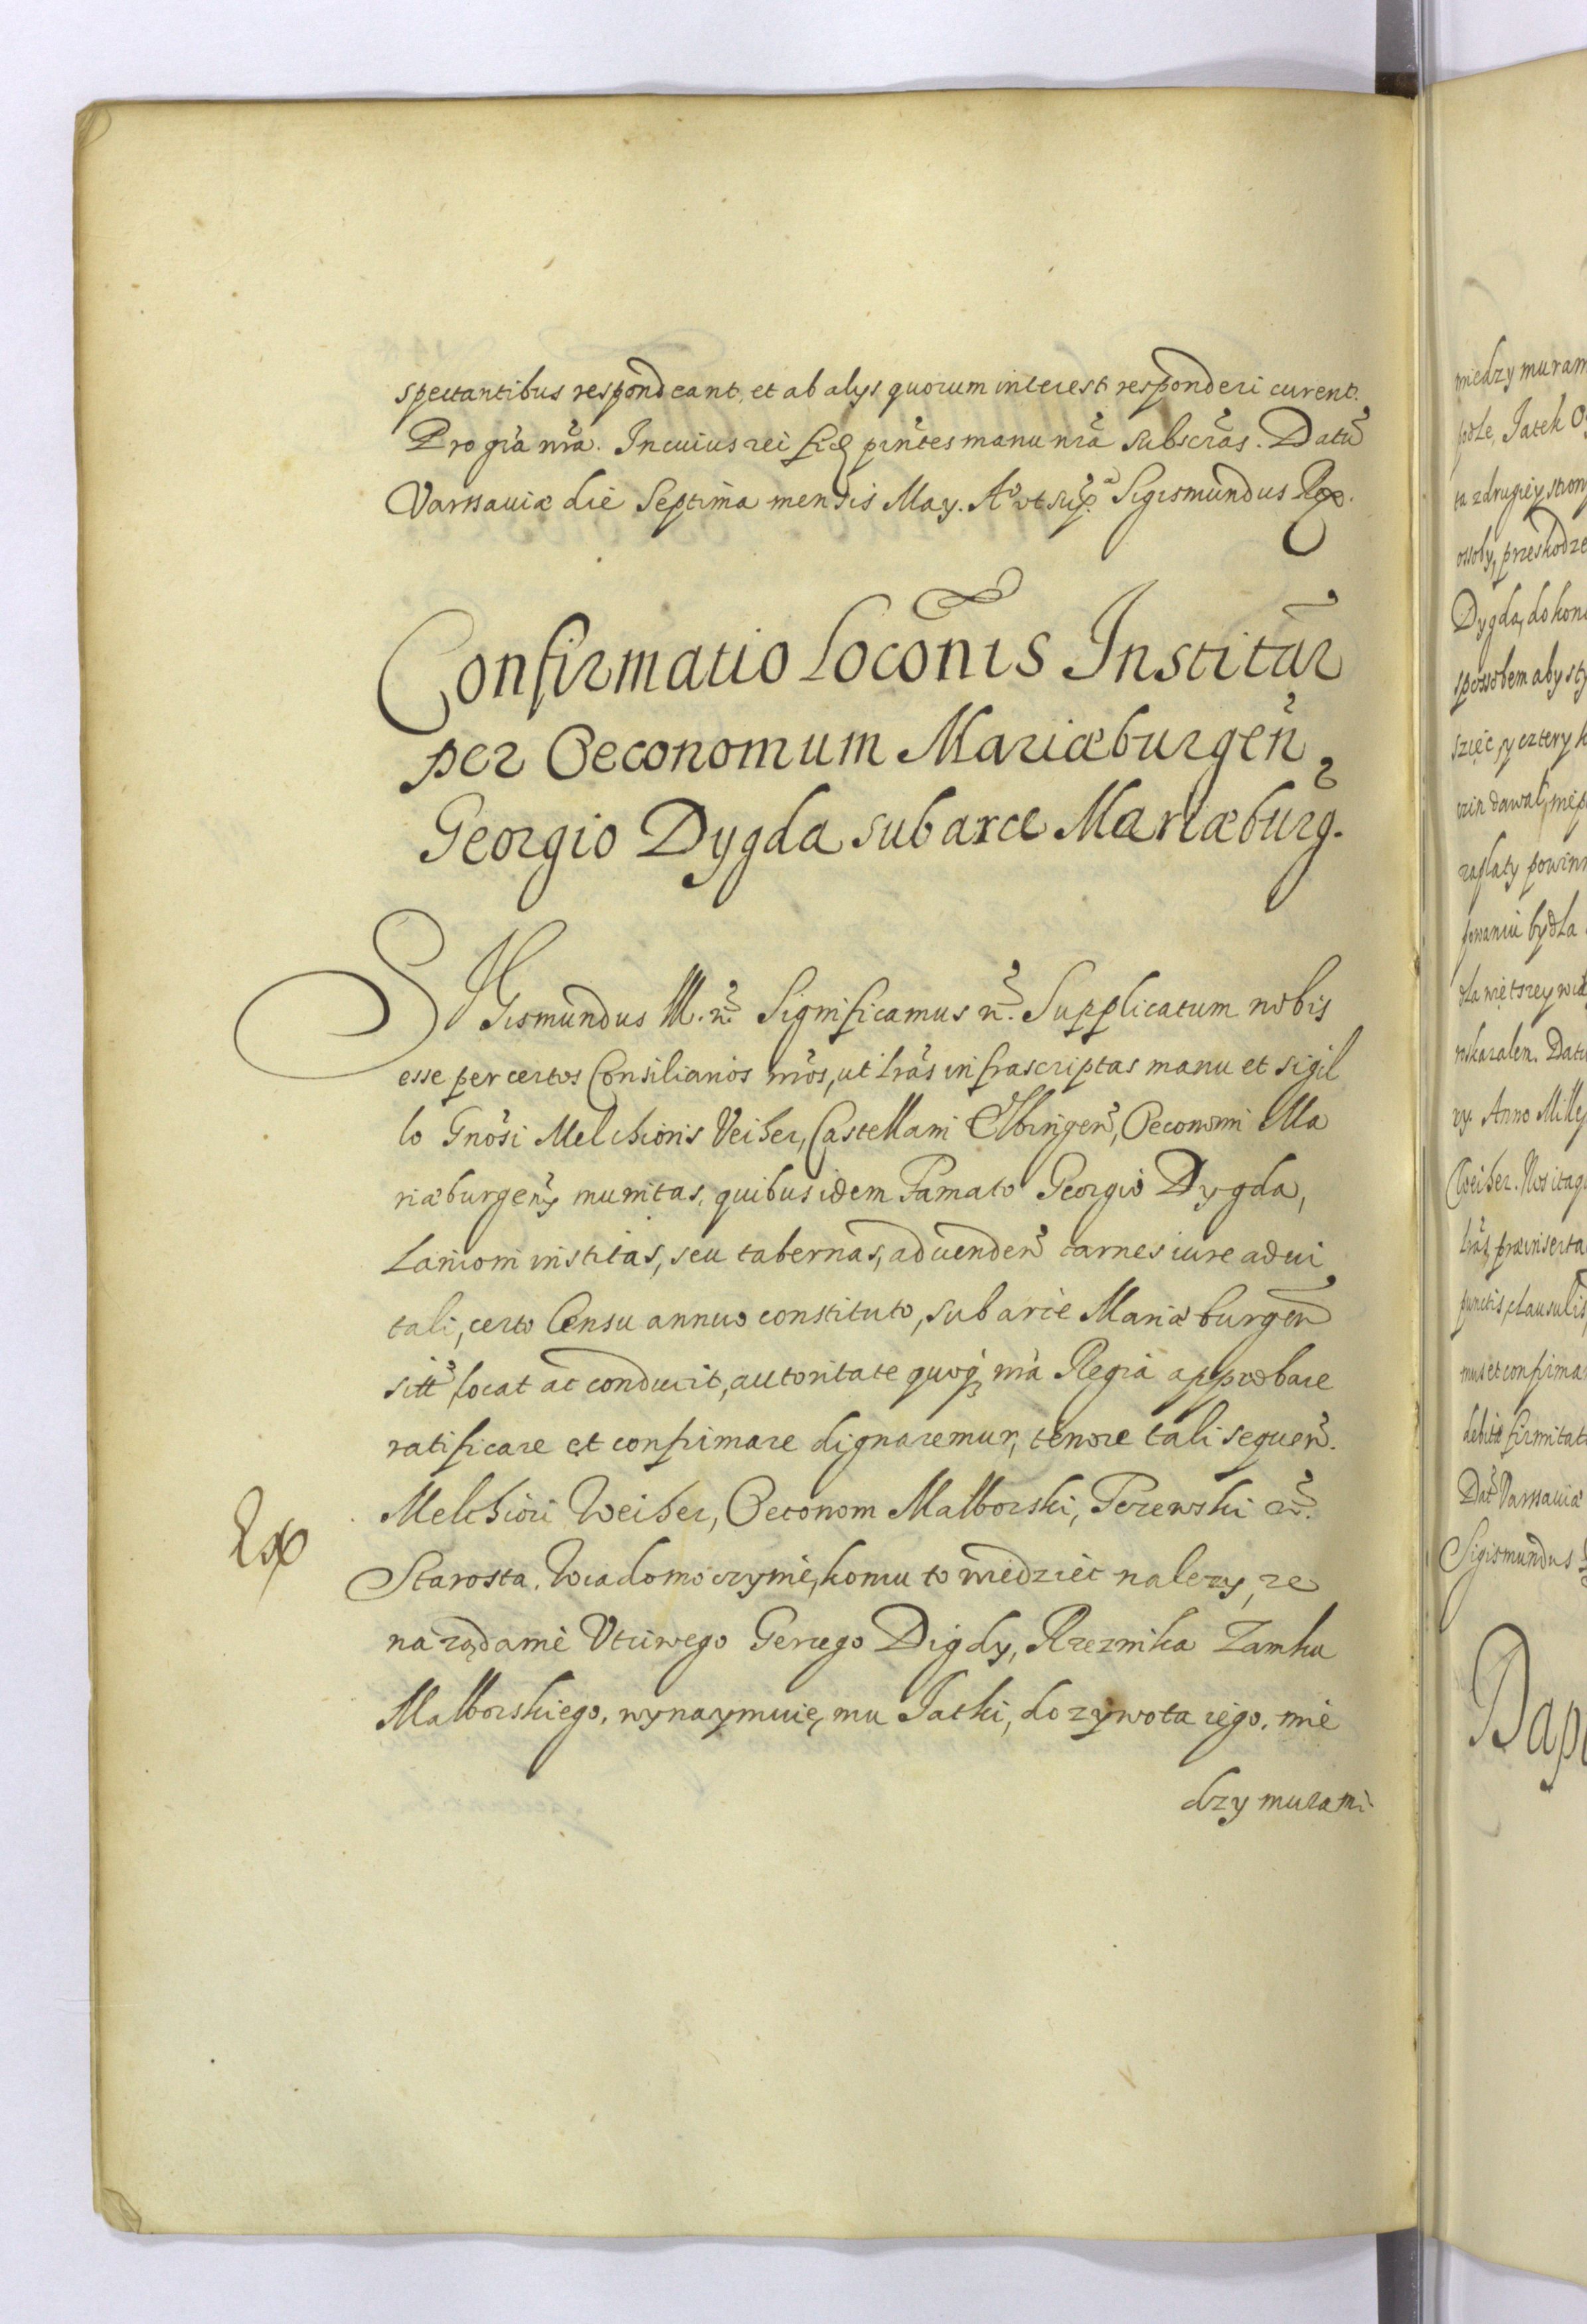 spectantibus respondeant, et ab alys quorum interest responderi curent.
Pro grã nrã. In cuius rei fid prñtes manu nrã subscrãs. Datũ
Varsaviæ die Septima mensis May. Aº ut sup. Sigismundus Rex.
Confirmatio Locõnis Institar̃
per Oeconomum Mariæburgeñ
Georgio Dygda sub arce Mariæburg.
SIgismundus III. ñ. Significamus ñ. Supplicatum nobis
esse per certos Consiliarios nrõs, ut lrãs infrascriptas manu et sigil
lo Gnõsi Melchioris Veiher, Castellani Elbingeñ, Oeconomi Ma
riæburgeñ munitas, quibus idem Famato Georgio Dygda,
Lanioni institas, seu tabernas, ad vendeñ carnes iure advi
tali, certo Censu annuo constituto, sub arce Mariæburgeñ
sitt̃ locat ac conducit, autoritate quoq nrã Regia approbare
ratificare et confirmare dignaremur, tenore tali sequeñ.
Melchior Weiher, Oeconom Malborski, ñ.
Ex
Starosta. Wiadomo czynię, komu to wiedziec nalezy, ze
na ządanie Utciwego Gerzego Digdy, Rzeznika Zamku
Malborskiego, wynaymuię, mu Jatki, do zywota iego, mie
dzy murami
miedzy muram
podle, Jatek
ta z drugiey stron
ossoby, przeskodze
Dygda, do kon
sposobem aby
szięc, y cztery
dawał,
zapłaty powinn
bydła
dla więtszey
roskazalem. Datu
Anno Mille
Weiher. Nos itaq
Lrãs, præinserta
punctis, clausulis,
mus et confirma
debitæ firmitat
Dat̃ Varsaviæ
Sigismundus